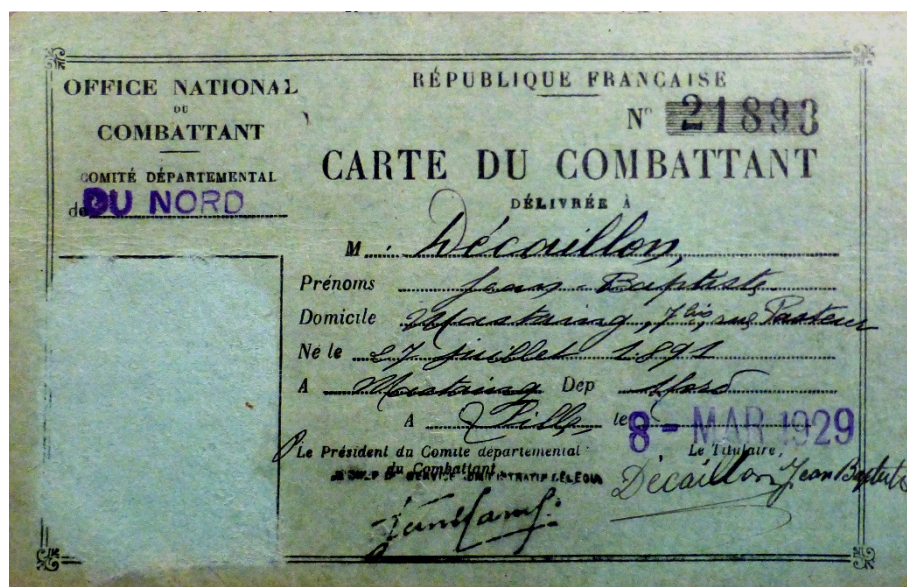 OFFICE NATIONAL
DU
COMBATTANT
COMITÉ DÉPARTEMENTAL
de DU NORD
RÉPUBLIQUE FRANÇAISE
N° 21893
CARTE DU COMBATTANT
DÉLIVRÉE À
M. Décaillon,
Prénoms Jean-Baptiste
Domicile Mastaing, 7bis, rue Pasteur
Né le 27 Juillet 1891
A Mastaing Dep Nord
A Lille le 8 - MAR 1929
Le Président du Comité départemental
du Combattant
SERVICE ADMINISTRATIF
Le Titulaire,
Décaillon Jean Baptiste